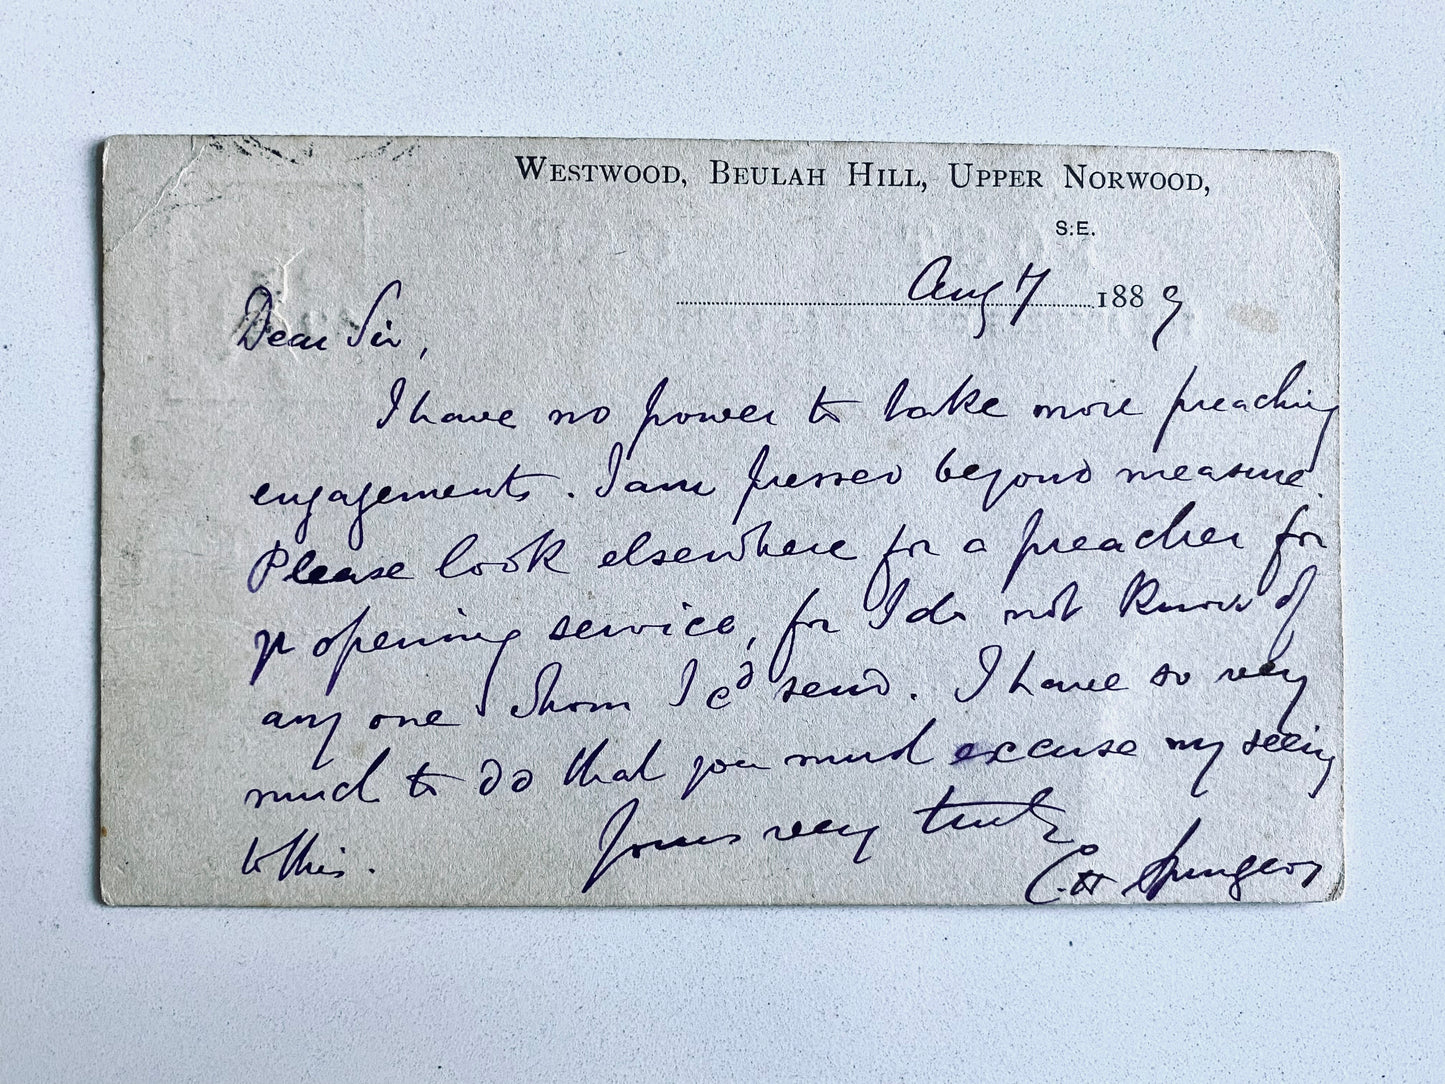 Westwood, Beulah Hill, Upper Norwood,
S.E.
Aug 7 1889
Dear Sir,
I have no power to take more preaching
engagements. I am pressed beyond measure.
Please look elsewhere for a preacher for
yr opening service, for I do not know of
any one whom I cd send. I have so very
much to do that you must excuse my seeing
to this.
Yours very truly
C. H. Spurgeon